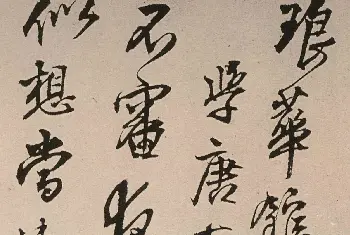 琅華館
學唐
不審
似想當